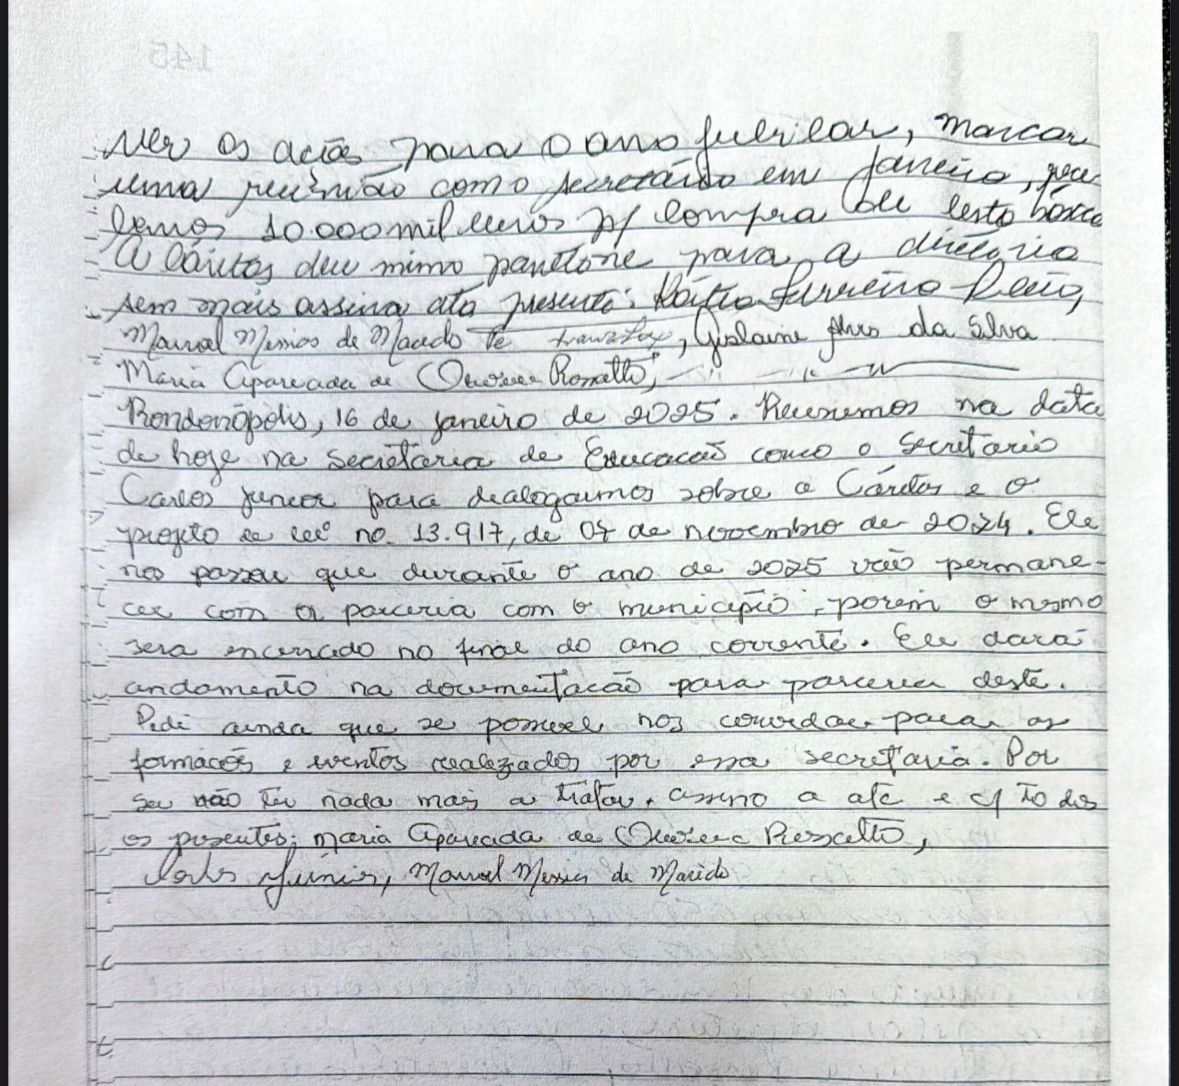 ver os ações para o ano jubilar, marcar
uma reunião como secretário em Janeiro, rece
bemos 10.000 mil p/ compra de cesta básica
A Cáritas deu mimo panetone para a diretoria
sem mais assina ata presente: Kátia Ferreira Leão,
Manoel Messias de Macedo Gislaine Alves da Silva
Maria Aparecida de Oliveira Rossatto,
Rondonópolis, 16 de janeiro de 2025. Reunimos na data
de hoje na secretaria de Educação como o secretario
Carlos Junior para dialogarmos sobre a Cáritas e o
projeto de lei no. 13.917, de 07 de novembro de 2024. Ele
nos passou que durante o ano de 2025 vão permane-
cer com a parceria com o município, porém o mesmo
sera encerrado no final do ano corrente. Ele dará
andamento na documentacão para parceria deste.
Pedi ainda que se possivel nos convidar para as
formacões e eventos realizados por essa secretaria. Por
se não ter nada mais a tratar, assino a ata e c/ todos
os presentes; Maria Aparecida de Oliveira Rossatto,
Carlos Júnior, Manoel Messias de Macedo
145